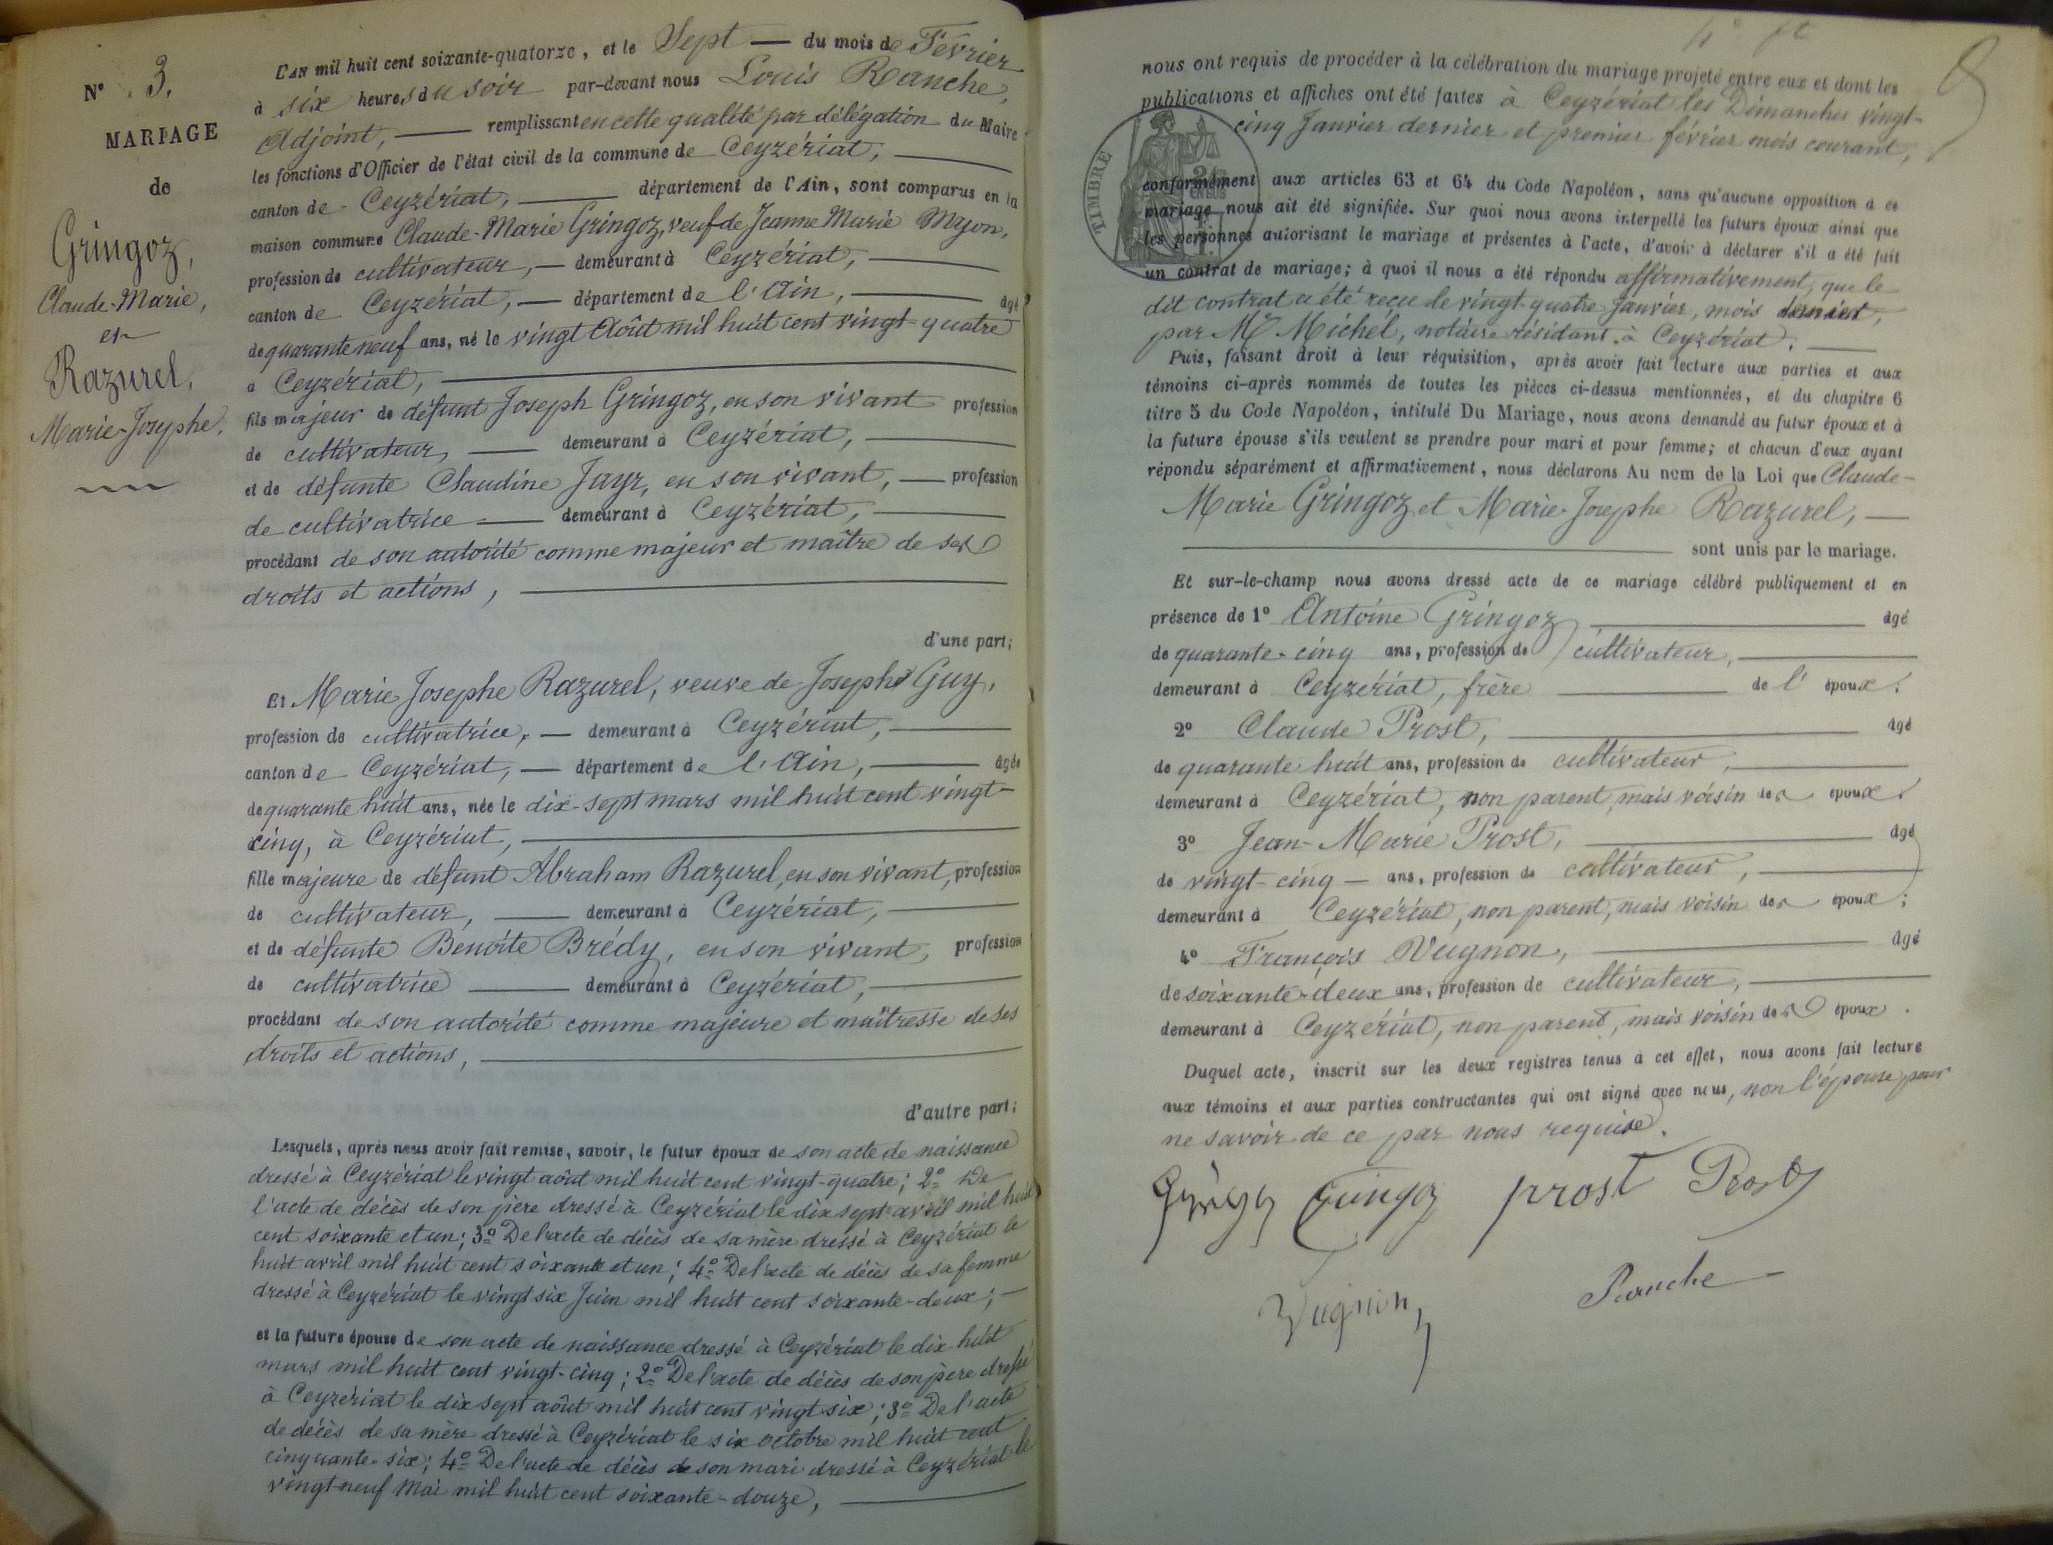 N° 3.
MARIAGE
de
Gringoz,
Claude-Marie,
et
Razurel,
Marie-Josephe.
L'AN mil huit cent soixante-quatorze, et le Sept — du mois de Février
à six heures du soir par-devant nous Louis Ranche,
Adjoint, — remplissant en cette qualité par délégation du Maire
les fonctions d'Officier de l'état civil de la commune de Ceyzériat, —
canton de Ceyzériat, — département de l'Ain, sont comparus en la
maison commune Claude-Marie Gringoz, veuf de Jeanne Marie Myon,
profession de cultivateur, — demeurant à Ceyzériat, —
canton de Ceyzériat, — département de l'Ain, — âgé
de quarante neuf ans, né le vingt Août mil huit cent vingt-quatre
à Ceyzériat, —
fils majeur de défunt Joseph Gringoz, en son vivant profession
de cultivateur, — demeurant à Ceyzériat, —
et de défunte Claudine Jayr, en son vivant, — profession
de cultivatrice — demeurant à Ceyzériat, —
procédant de son autorité comme majeur et maître de ses
droits et actions, —
d'une part;
Et Marie Josephe Razurel, veuve de Joseph Guy,
profession de cultivatrice, — demeurant à Ceyzériat, —
canton de Ceyzériat, — département de l'Ain, — âgée
de quarante huit ans, née le dix-sept mars mil huit cent vingt-
cinq, à Ceyzériat, —
fille majeure de défunt Abraham Razurel, en son vivant, profession
de cultivateur, — demeurant à Ceyzériat, —
et de défunte Benoite Brédy, en son vivant, profession
de cultivatrice — demeurant à Ceyzériat, —
procédant de son autorité comme majeure et maîtresse de ses
droits et actions, —
d'autre part;
Lesquels, après nous avoir fait remise, savoir, le futur époux de son acte de naissance
dressé à Ceyzériat le vingt août mil huit cent vingt-quatre; 2° De
l'acte de décès de son père dressé à Ceyzériat le dix sept avril mil huit
cent soixante et un; 3° De l'acte de décès de sa mère dressé à Ceyzériat le
huit avril mil huit cent soixante et un; 4° De l'acte de décès de sa femme
dressé à Ceyzériat le vingt six Juin mil huit cent soixante-deux; —
et la future épouse de son acte de naissance dressé à Ceyzériat le dix huit
mars mil huit cent vingt-cinq; 2° De l'acte de décès de son père dressé
à Ceyzériat le dix sept août mil huit cent vingt six; 3° De l'acte
de décès de sa mère dressé à Ceyzériat le six octobre mil huit cent
cinquante-six; 4° De l'acte de décès de son mari dressé à Ceyzériat le
vingt neuf Mai mil huit cent soixante-douze, —
nous ont requis de procéder à la célébration du mariage projeté entre eux et dont les
publications et affiches ont été faites à Ceyzériat les Dimanches vingt-
cinq Janvier dernier et premier février mois courant,
TIMBRE
conformément aux articles 63 et 64 du Code Napoléon, sans qu'aucune opposition à ce
mariage nous ait été signifiée. Sur quoi nous avons interpellé les futurs époux ainsi que
les personnes autorisant le mariage et présentes à l'acte, d'avoir à déclarer s'il a été fait
un contrat de mariage; à quoi il nous a été répondu affirmativement, que le
dit contrat a été reçu le vingt-quatre Janvier, mois dernier,
par Me Michel, notaire résidant à Ceyzériat. —
Puis, faisant droit à leur réquisition, après avoir fait lecture aux parties et aux
témoins ci-après nommés de toutes les pièces ci-dessus mentionnées, et du chapitre 6
titre 5 du Code Napoléon, intitulé Du Mariage, nous avons demandé au futur époux et à
la future épouse s'ils veulent se prendre pour mari et pour femme; et chacun d'eux ayant
répondu séparément et affirmativement, nous déclarons Au nom de la Loi que Claude-
Marie Gringoz et Marie-Josephe Razurel, —
— sont unis par le mariage.
Et sur-le-champ nous avons dressé acte de ce mariage célébré publiquement et en
présence de 1° Antoine Gringoz — âgé
de quarante-cinq ans, profession de cultivateur, —
demeurant à Ceyzériat, frère — de l'époux.
2° Claude Prost, — âgé
de quarante huit ans, profession de cultivateur, —
demeurant à Ceyzériat, non parent, mais voisin des époux.
3° Jean-Marie Prost, — âgé
de vingt-cinq — ans, profession de cultivateur, —
demeurant à Ceyzériat, non parent, mais voisin des époux;
4° François Vugnon, — âgé
de soixante-deux ans, profession de cultivateur, —
demeurant à Ceyzériat, non parent, mais voisin des époux.
Duquel acte, inscrit sur les deux registres tenus à cet effet, nous avons fait lecture
aux témoins et aux parties contractantes qui ont signé avec nous, non l'épouse pour
ne savoir de ce par nous requise.
Gringoz prost Prost
Vugnon Ranche